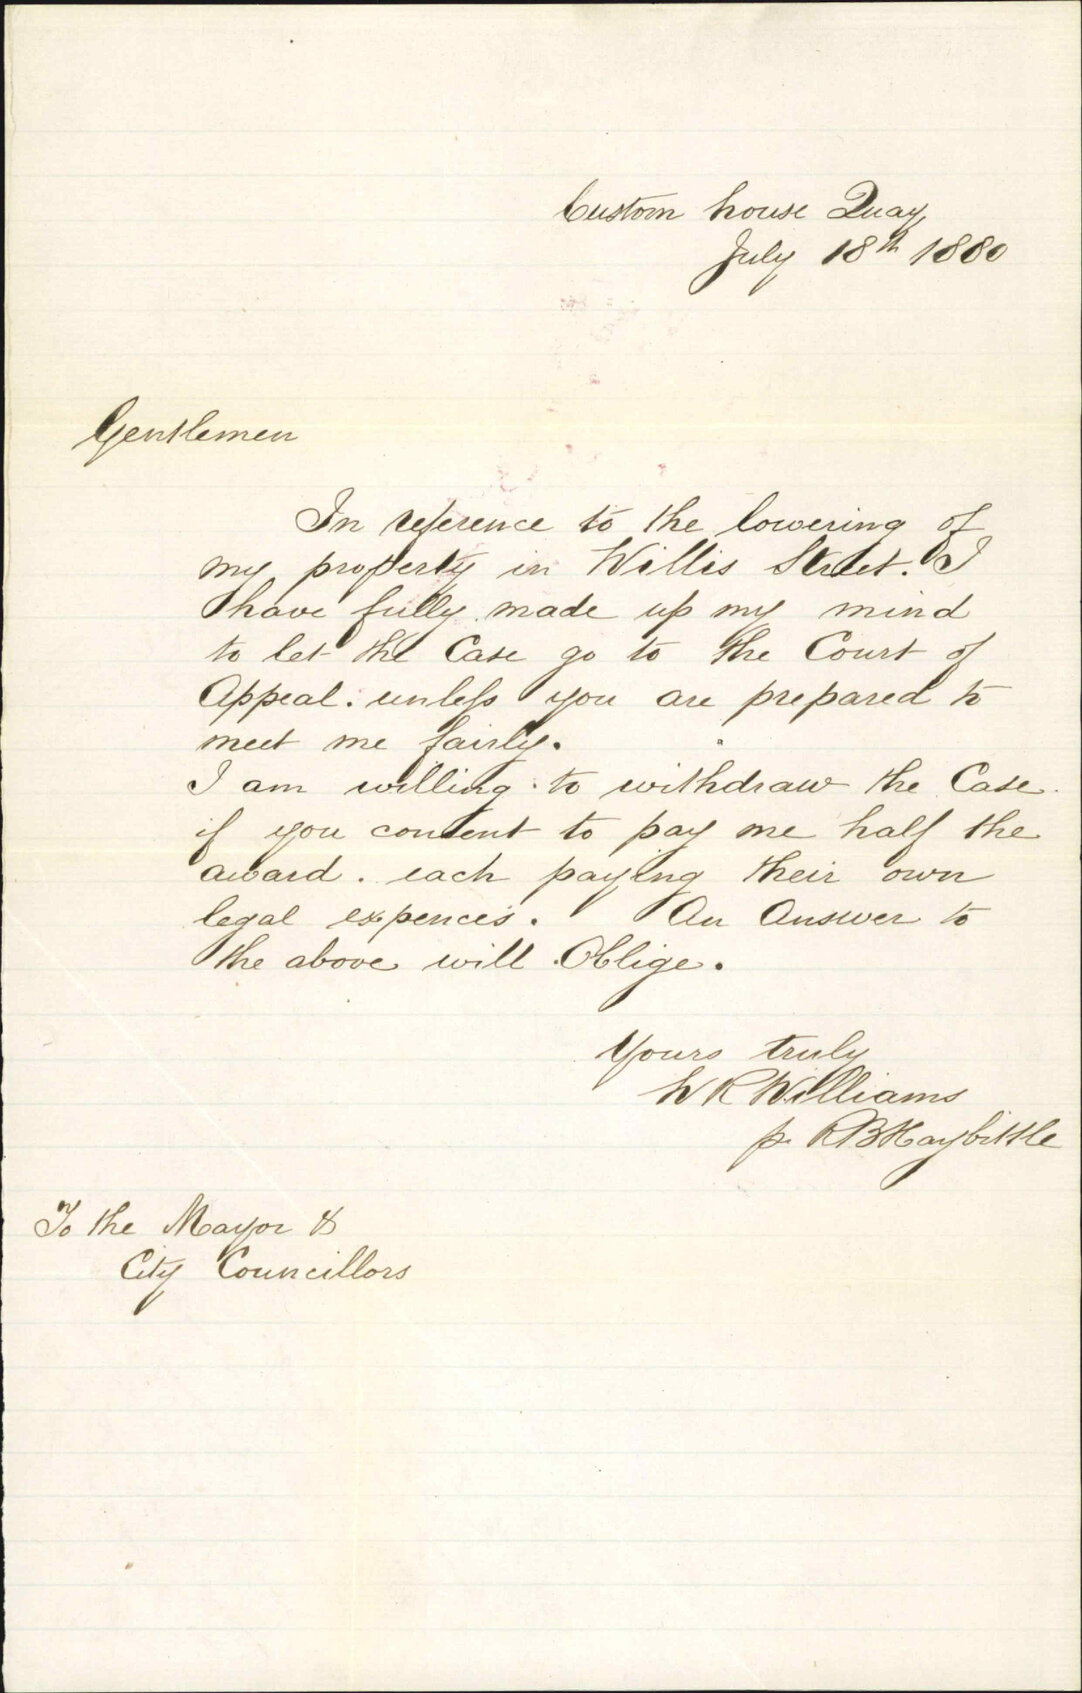 Custom house Quay
July 18th 1880
Gentlemen
In reference to the lowering of
my property in Willis Street. I
have fully made up my mind
to let the Case go to the Court of
Appeal. unless you are prepared to
meet me fairly.
I am willing to withdraw the Case
if you consent to pay me half the
award. each paying their own
legal expences. An Answer to
the above will Oblige.
Yours truly
W R Williams
p. R B Haybittle
To the Mayor &
City Councillors